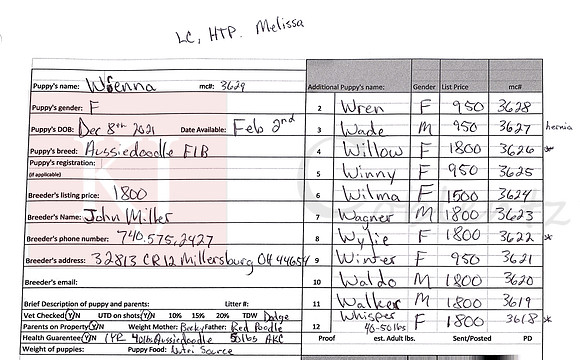 LC, HTP. Melissa
Puppy's name: Wrenna mc#: 3629 Additional Puppy's name: Gender List Price mc#
Puppy's gender: F 2 Wren F 950 3628
Puppy's DOB: Dec 8th 2021 Date Available: Feb 2nd 3 Wade M 950 3627 hernia
Puppy's breed: Aussiedoodle F1B 4 Willow F 1800 3626 *
Puppy's registration: 5 Winny F 950 3625
(if applicable)
Breeder's listing price: 1800 6 Wilma F 1500 3624
Breeder's Name: John Miller 7 Wagner M 1800 3623
Breeder's phone number: 740.575.2427 8 Wylie F 1800 3622 *
Breeder's address: 32813 CR12 Millersburg OH 44654 9 Winter F 950 3621
Breeder's email: 10 Waldo M 1800 3620
Brief Description of puppy and parents: Litter #: 11 Walker M 1800 3619
Vet Checked (Y)/N UTD on shots: (Y)/N 10% 15% 20% TDW Dodge 12 Whisper F 1800 3618 *
Parents on Property (Y)/N Weight Mother: Becky Father: Red Poodle 40-50 lbs
Health Guarantee (Y)/N 1YR 40lbs Aussiedoodle 50lbs AKC Proof est. Adult lbs. Sent/Posted PD
Weight of puppies: Puppy Food: Nutri Source